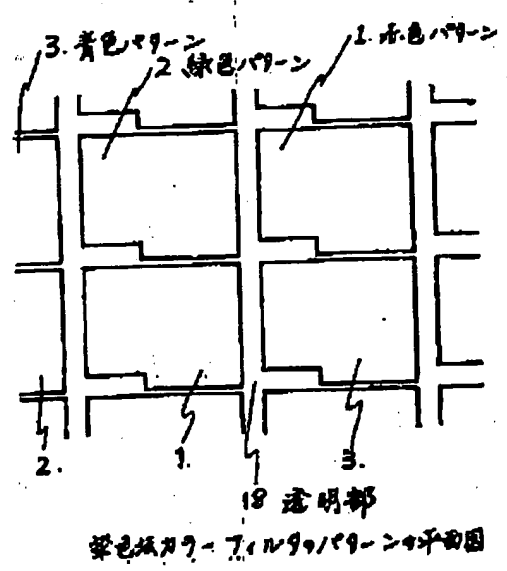 3. 青色パターン
1. 赤色パターン
2 緑色パターン
2.
1.
3.
18 透明部
染色法カラーフィルタのパターンの平面図